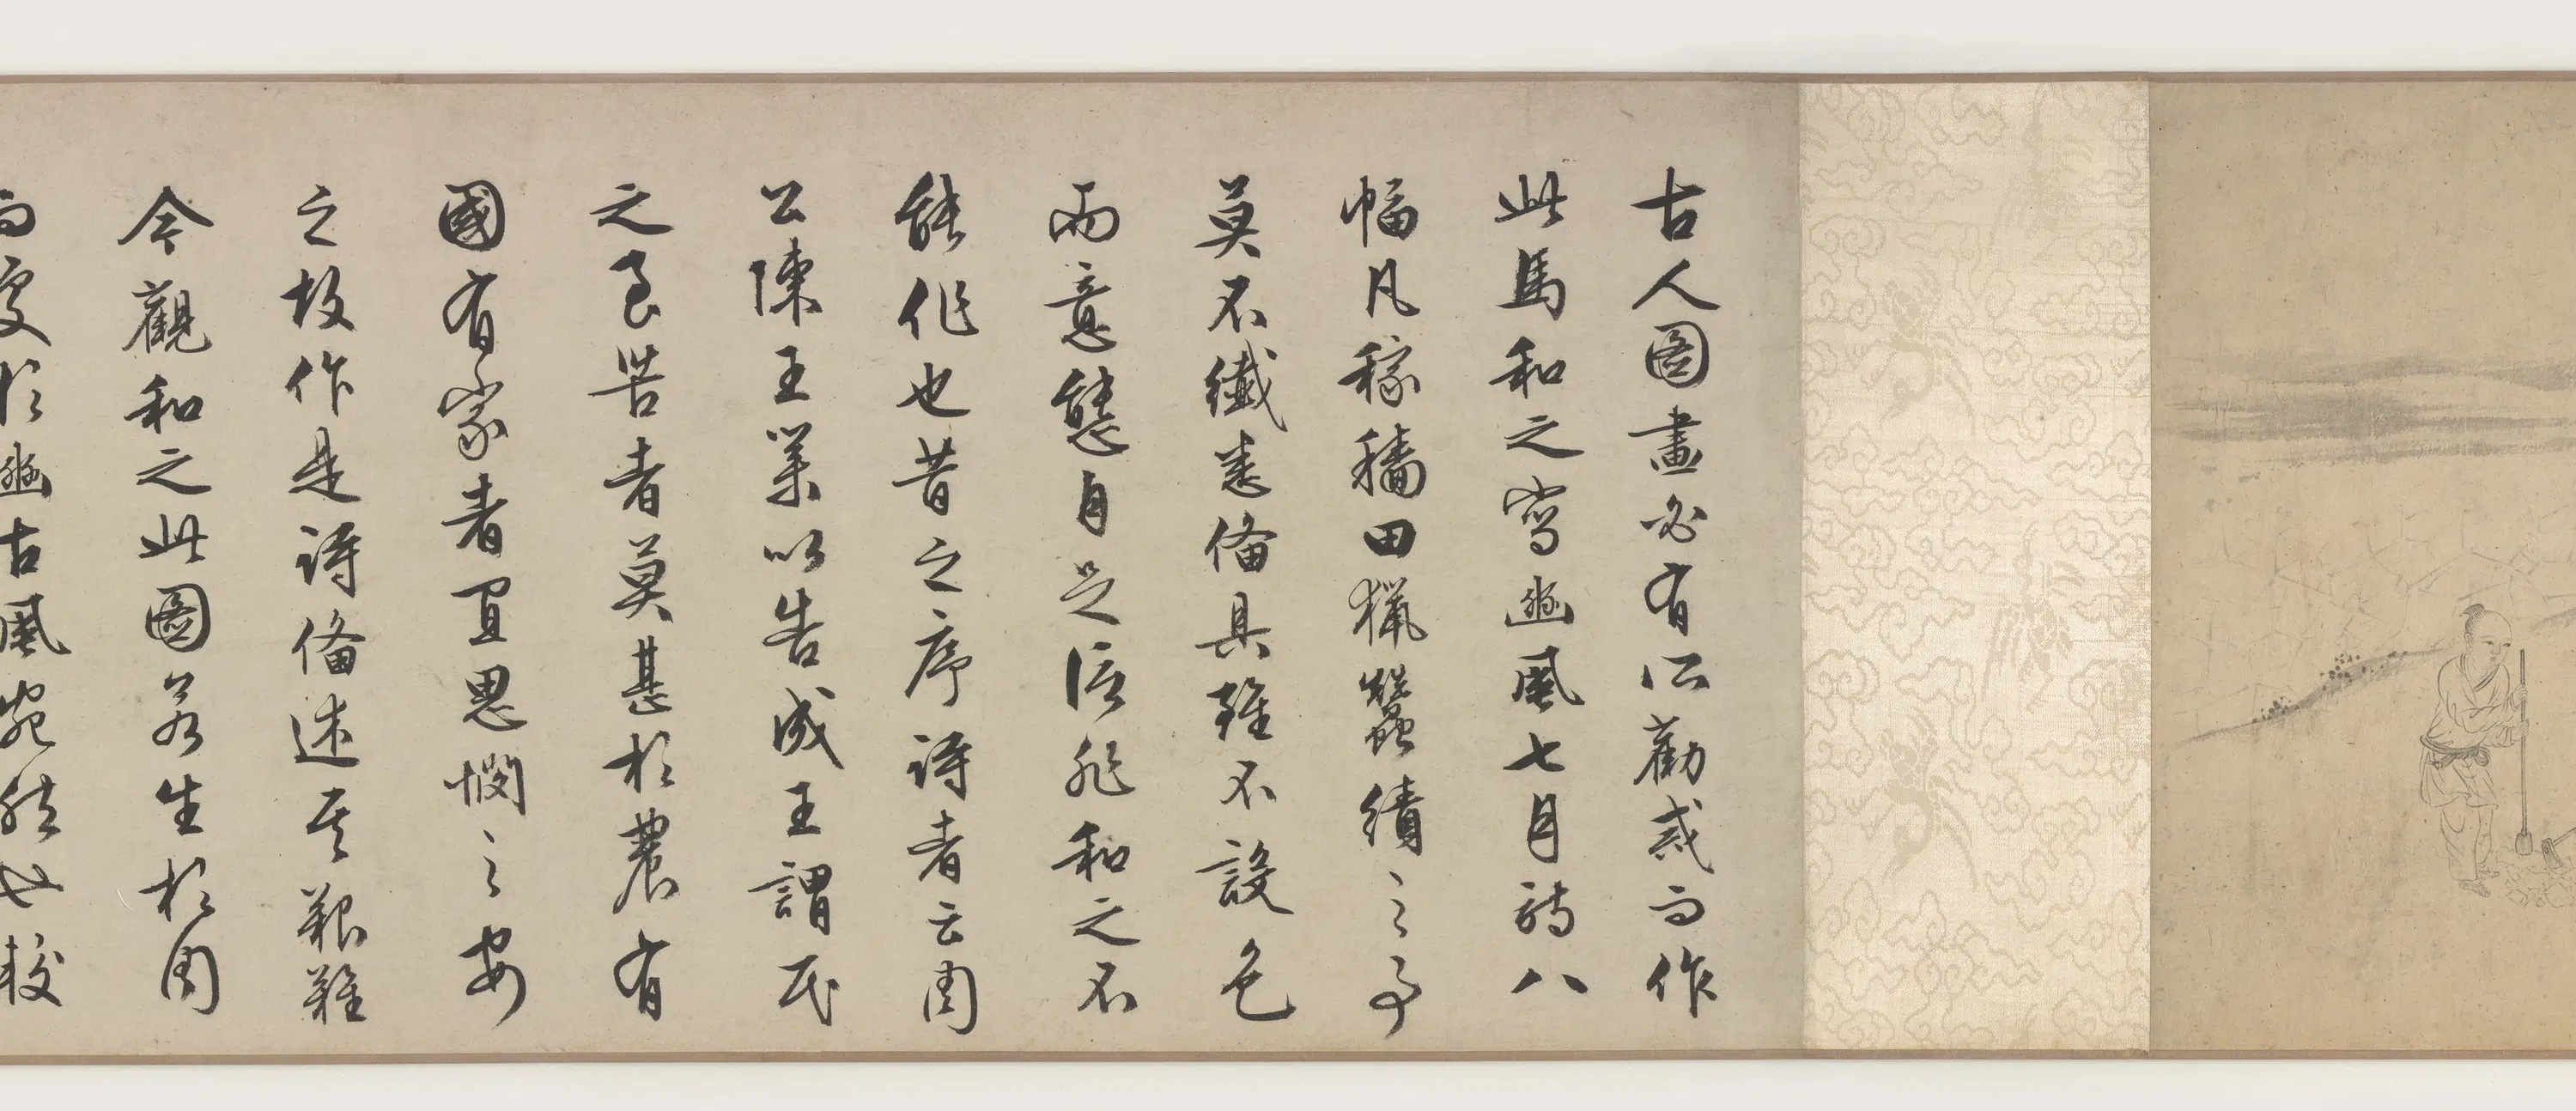 古人圖畫必有所勸戒而作
此馬和之寫豳風七月詩八
幅凡稼穡田獵蠶績之事
莫不纖悉備具雖不設色
而意態自足信非和之不
能作也昔之序詩者云周
公陳王業以告成王謂民
之至苦者莫甚於農有
國有家者宜思憫之安
之故作是詩備述其艱難
今觀和之此圖若生於周
而處於豳古風宛然此較